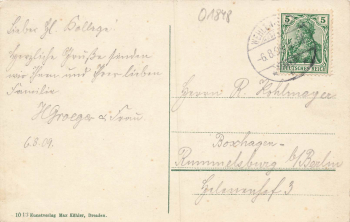 O1848
Lieber H. Kollege!
Herzliche Grüße senden
wir Ihnen und Ihrer lieben
Familie
H. Kroeger u. Frau.
6.8.09.
5 5
DEUTSCHES REICH
-6.8.0
Herrn R. Kohlmayer
Boxhagen-
Rummelsburg b/Berlin
Helenenhof 3
Kunstverlag Max Köhler, Dresden.